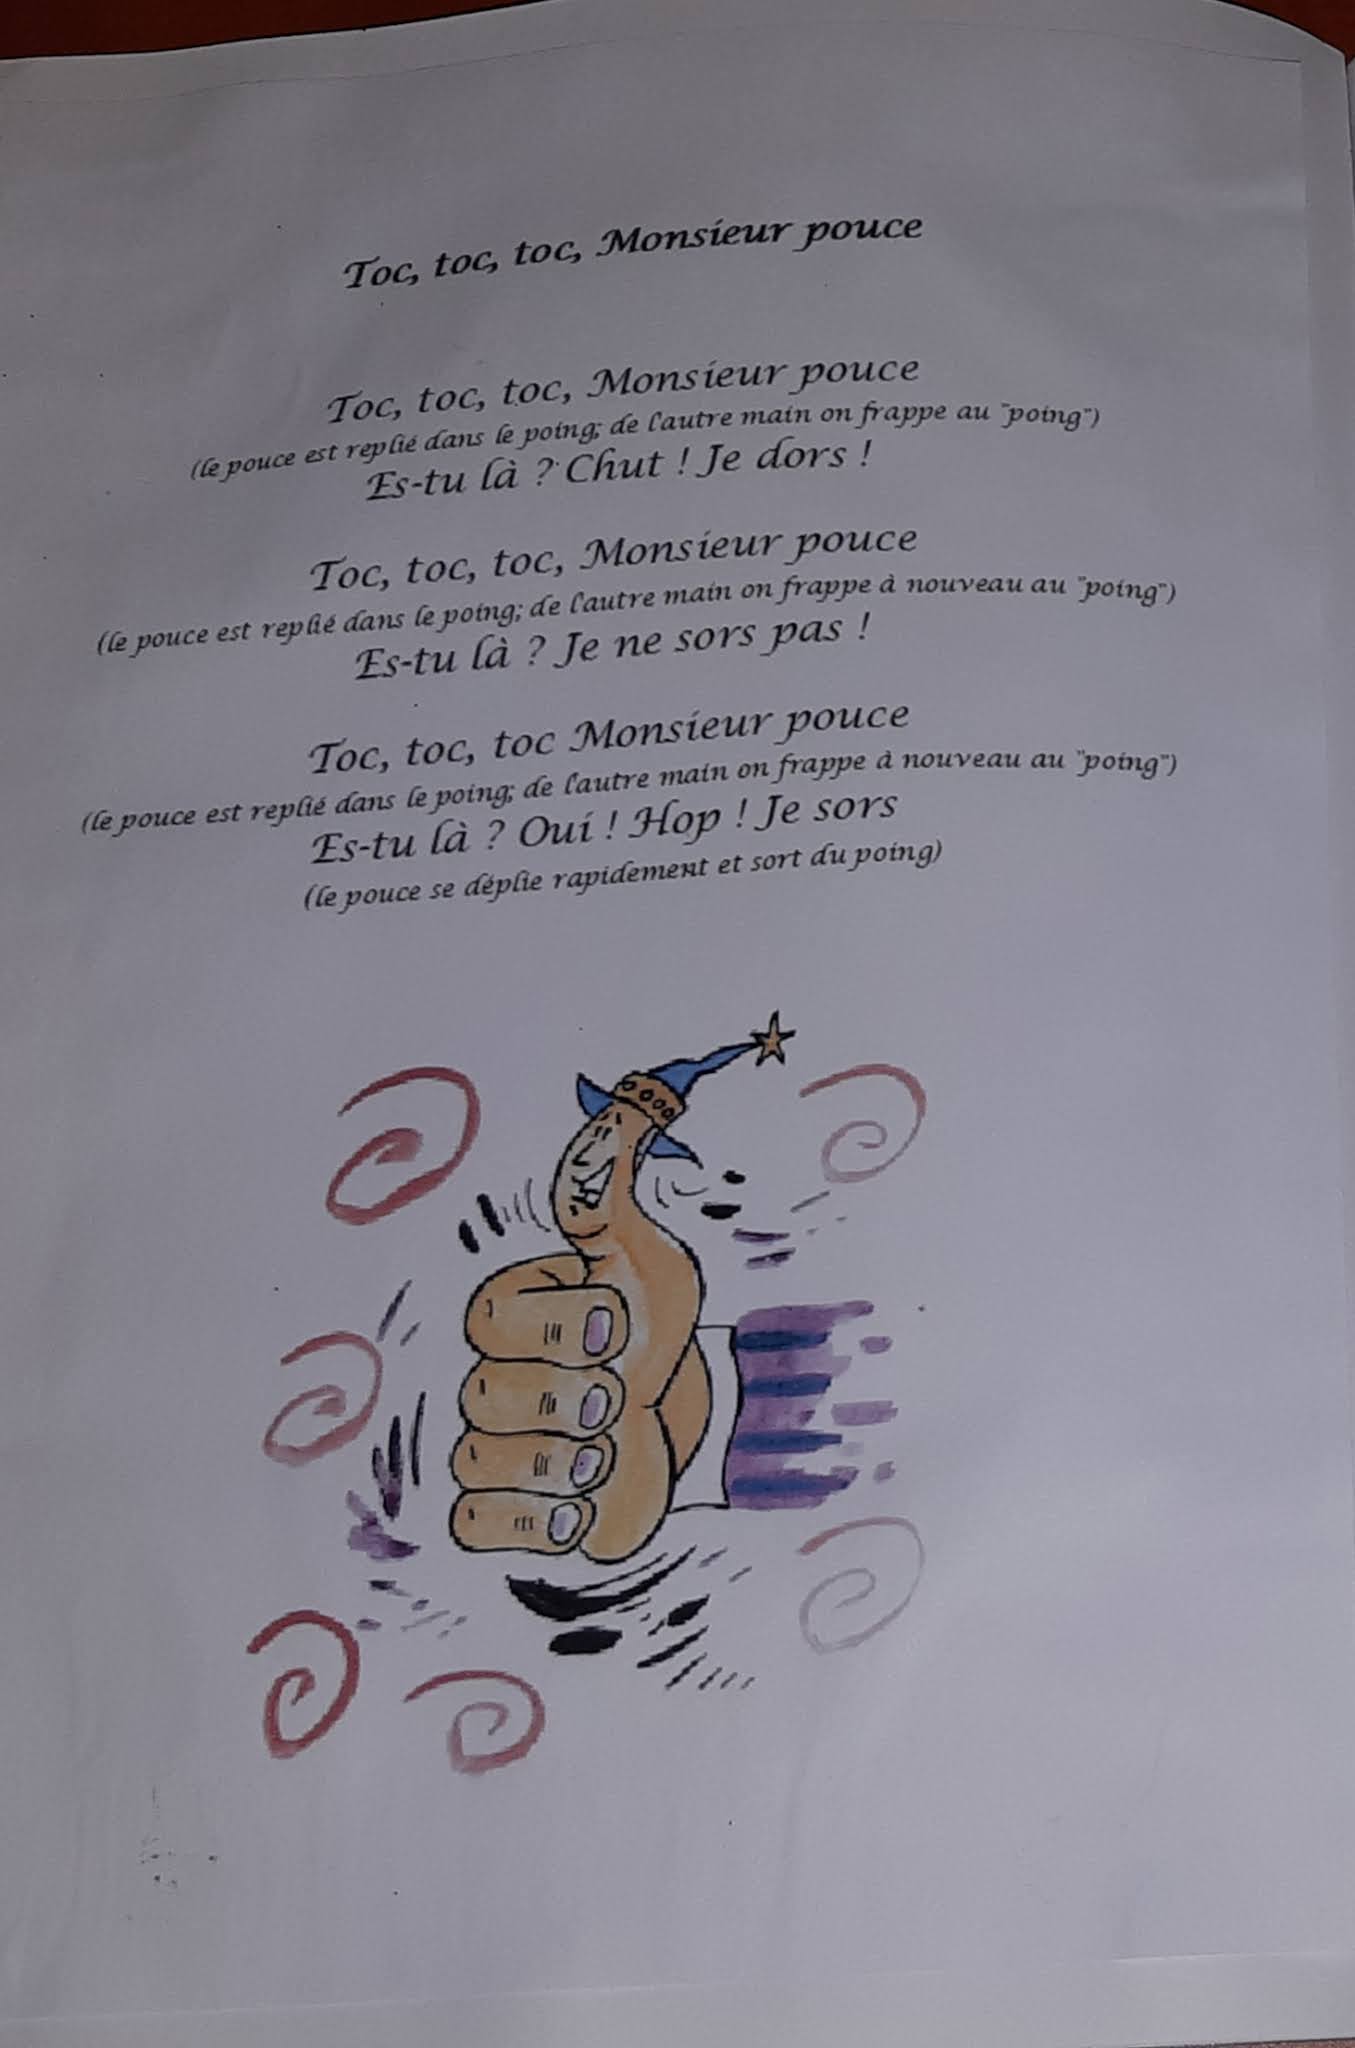 Toc, toc, toc, Monsieur pouce
Toc, toc, toc, Monsieur pouce
(le pouce est replié dans le poing; de l'autre main on frappe au "poing")
Es-tu là ? Chut ! Je dors !
Toc, toc, toc, Monsieur pouce
(le pouce est replié dans le poing; de l'autre main on frappe à nouveau au "poing")
Es-tu là ? Je ne sors pas !
Toc, toc, toc Monsieur pouce
(le pouce est replié dans le poing; de l'autre main on frappe à nouveau au "poing")
Es-tu là ? Oui ! Hop ! Je sors
(le pouce se déplie rapidement et sort du poing)